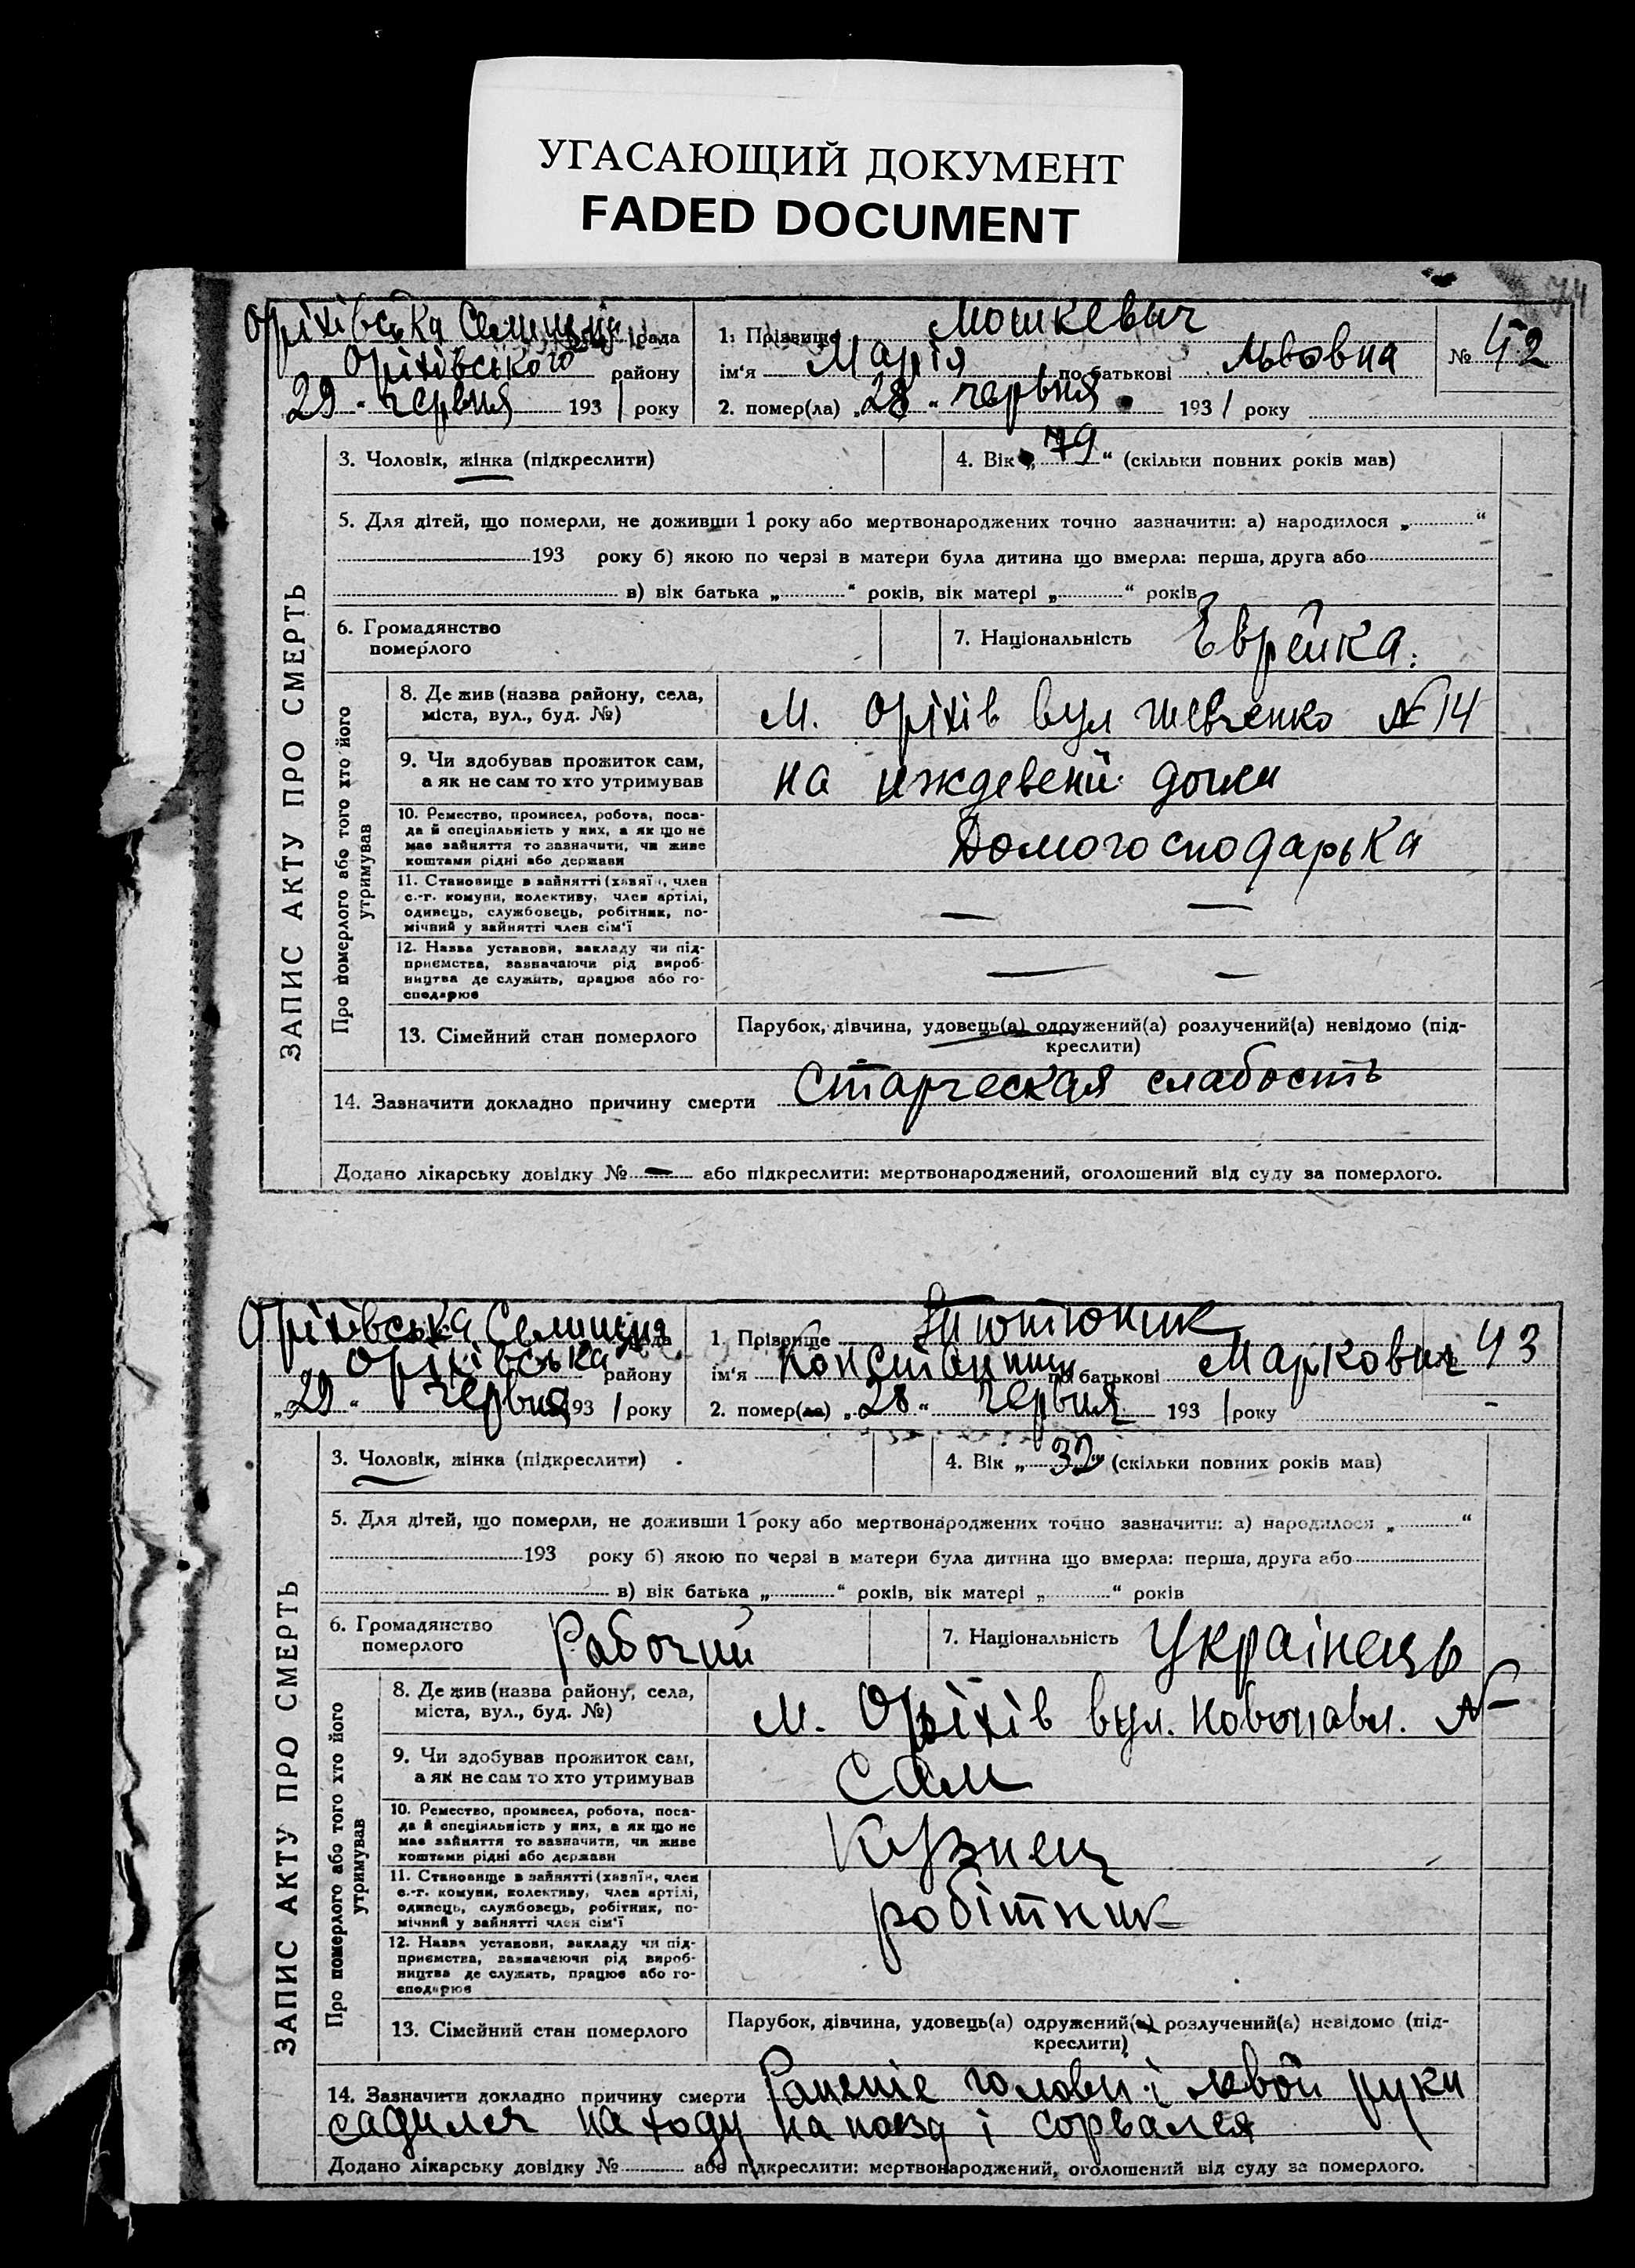 УГАСАЮЩИЙ ДОКУМЕНТ
FADED DOCUMENT
74
Оріхівська Селищна рада
Оріхівського району
29 " червня 193 1 року
1. Прізвище Мошкевич
ім'я Марія по батькові Львовна
2. помер(ла) „ 28 " червня 193 1 року
№ 42
ЗАПИС АКТУ ПРО СМЕРТЬ
3. Чоловік, жінка (підкреслити)
4. Вік „ 79 " (скільки повних років мав)
5. Для дітей, що померли, не доживши 1 року або мертвонароджених точно зазначити: а) народилося „ "
193 року б) якою по черзі в матери була дитина що вмерла: перша, друга або
в) вік батька „ " років, вік матері „ " років
6. Громадянство
померлого
7. Національність Еврейка.
Про померлого або того хто його
утримував
8. Де жив (назва району, села,
міста, вул., буд. №)
м. Оріхів вул Шевченко № 14
9. Чи здобував прожиток сам,
а як не сам то хто утримував
на иждевені дочки
10. Ремество, промисел, робота, поса-
да й спеціяльність у них, а як що не
має зайняття то зазначити, чи живе
коштами рідні або держави
Домогосподарька
11. Становище в зайнятті (хазяїн, член
с.-г. комуни, колективу, член артілі,
одинець, службовець, робітник, по-
мічний у зайнятті член сім'ї
— —
12. Назва установи, закладу чи під-
приємства, зазначаючи рід вироб-
ництва де служить, працює або го-
сподарює
— —
13. Сімейний стан померлого
Парубок, дівчина, удовець(а) одружений(а) розлучений(а) невідомо (під-
креслити)
14. Зазначити докладно причину смерти Старческая слабость
Додано лікарську довідку № — або підкреслити: мертвонароджений, оголошений від суду за померлого.
Оріхівська Селищна рада
Оріхівська району
„ 29 " червня 193 1 року
1. Прізвище
ім'я Константин по батькові Маркович
2. помер(ла) „ 28 " червня 193 1 року
43
ЗАПИС АКТУ ПРО СМЕРТЬ
3. Чоловік, жінка (підкреслити)
4. Вік „ 32 " (скільки повних років мав)
5. Для дітей, що померли, не доживши 1 року або мертвонароджених точно зазначити: а) народилося „ "
193 року б) якою по черзі в матери була дитина що вмерла: перша, друга або
в) вік батька „ " років, вік матері „ " років
6. Громадянство
померлого
Рабочий
7. Національність Українець
Про померлого або того хто його
утримував
8. Де жив (назва району, села,
міста, вул., буд. №)
м. Оріхів вул. Новопавл. №
9. Чи здобував прожиток сам,
а як не сам то хто утримував
Сам
10. Ремество, промисел, робота, поса-
да й спеціяльність у них, а як що не
має зайняття то зазначити, чи живе
коштами рідні або держави
Кузнец
11. Становище в зайнятті (хазяїн, член
с.-г. комуни, колективу, член артілі,
одинець, службовець, робітник, по-
мічний у зайнятті член сім'ї
робітник
12. Назва установи, закладу чи під-
приємства, зазначаючи рід вироб-
ництва де служить, працює або го-
сподарює
13. Сімейний стан померлого
Парубок, дівчина, удовець(а) одружений(а) розлучений(а) невідомо (під-
креслити)
14. Зазначити докладно причину смерти Раненіе голови і лівой руки
садился на ходу на поізд і сорвался
Додано лікарську довідку № або підкреслити: мертвонароджений, оголошений від суду за померлого.